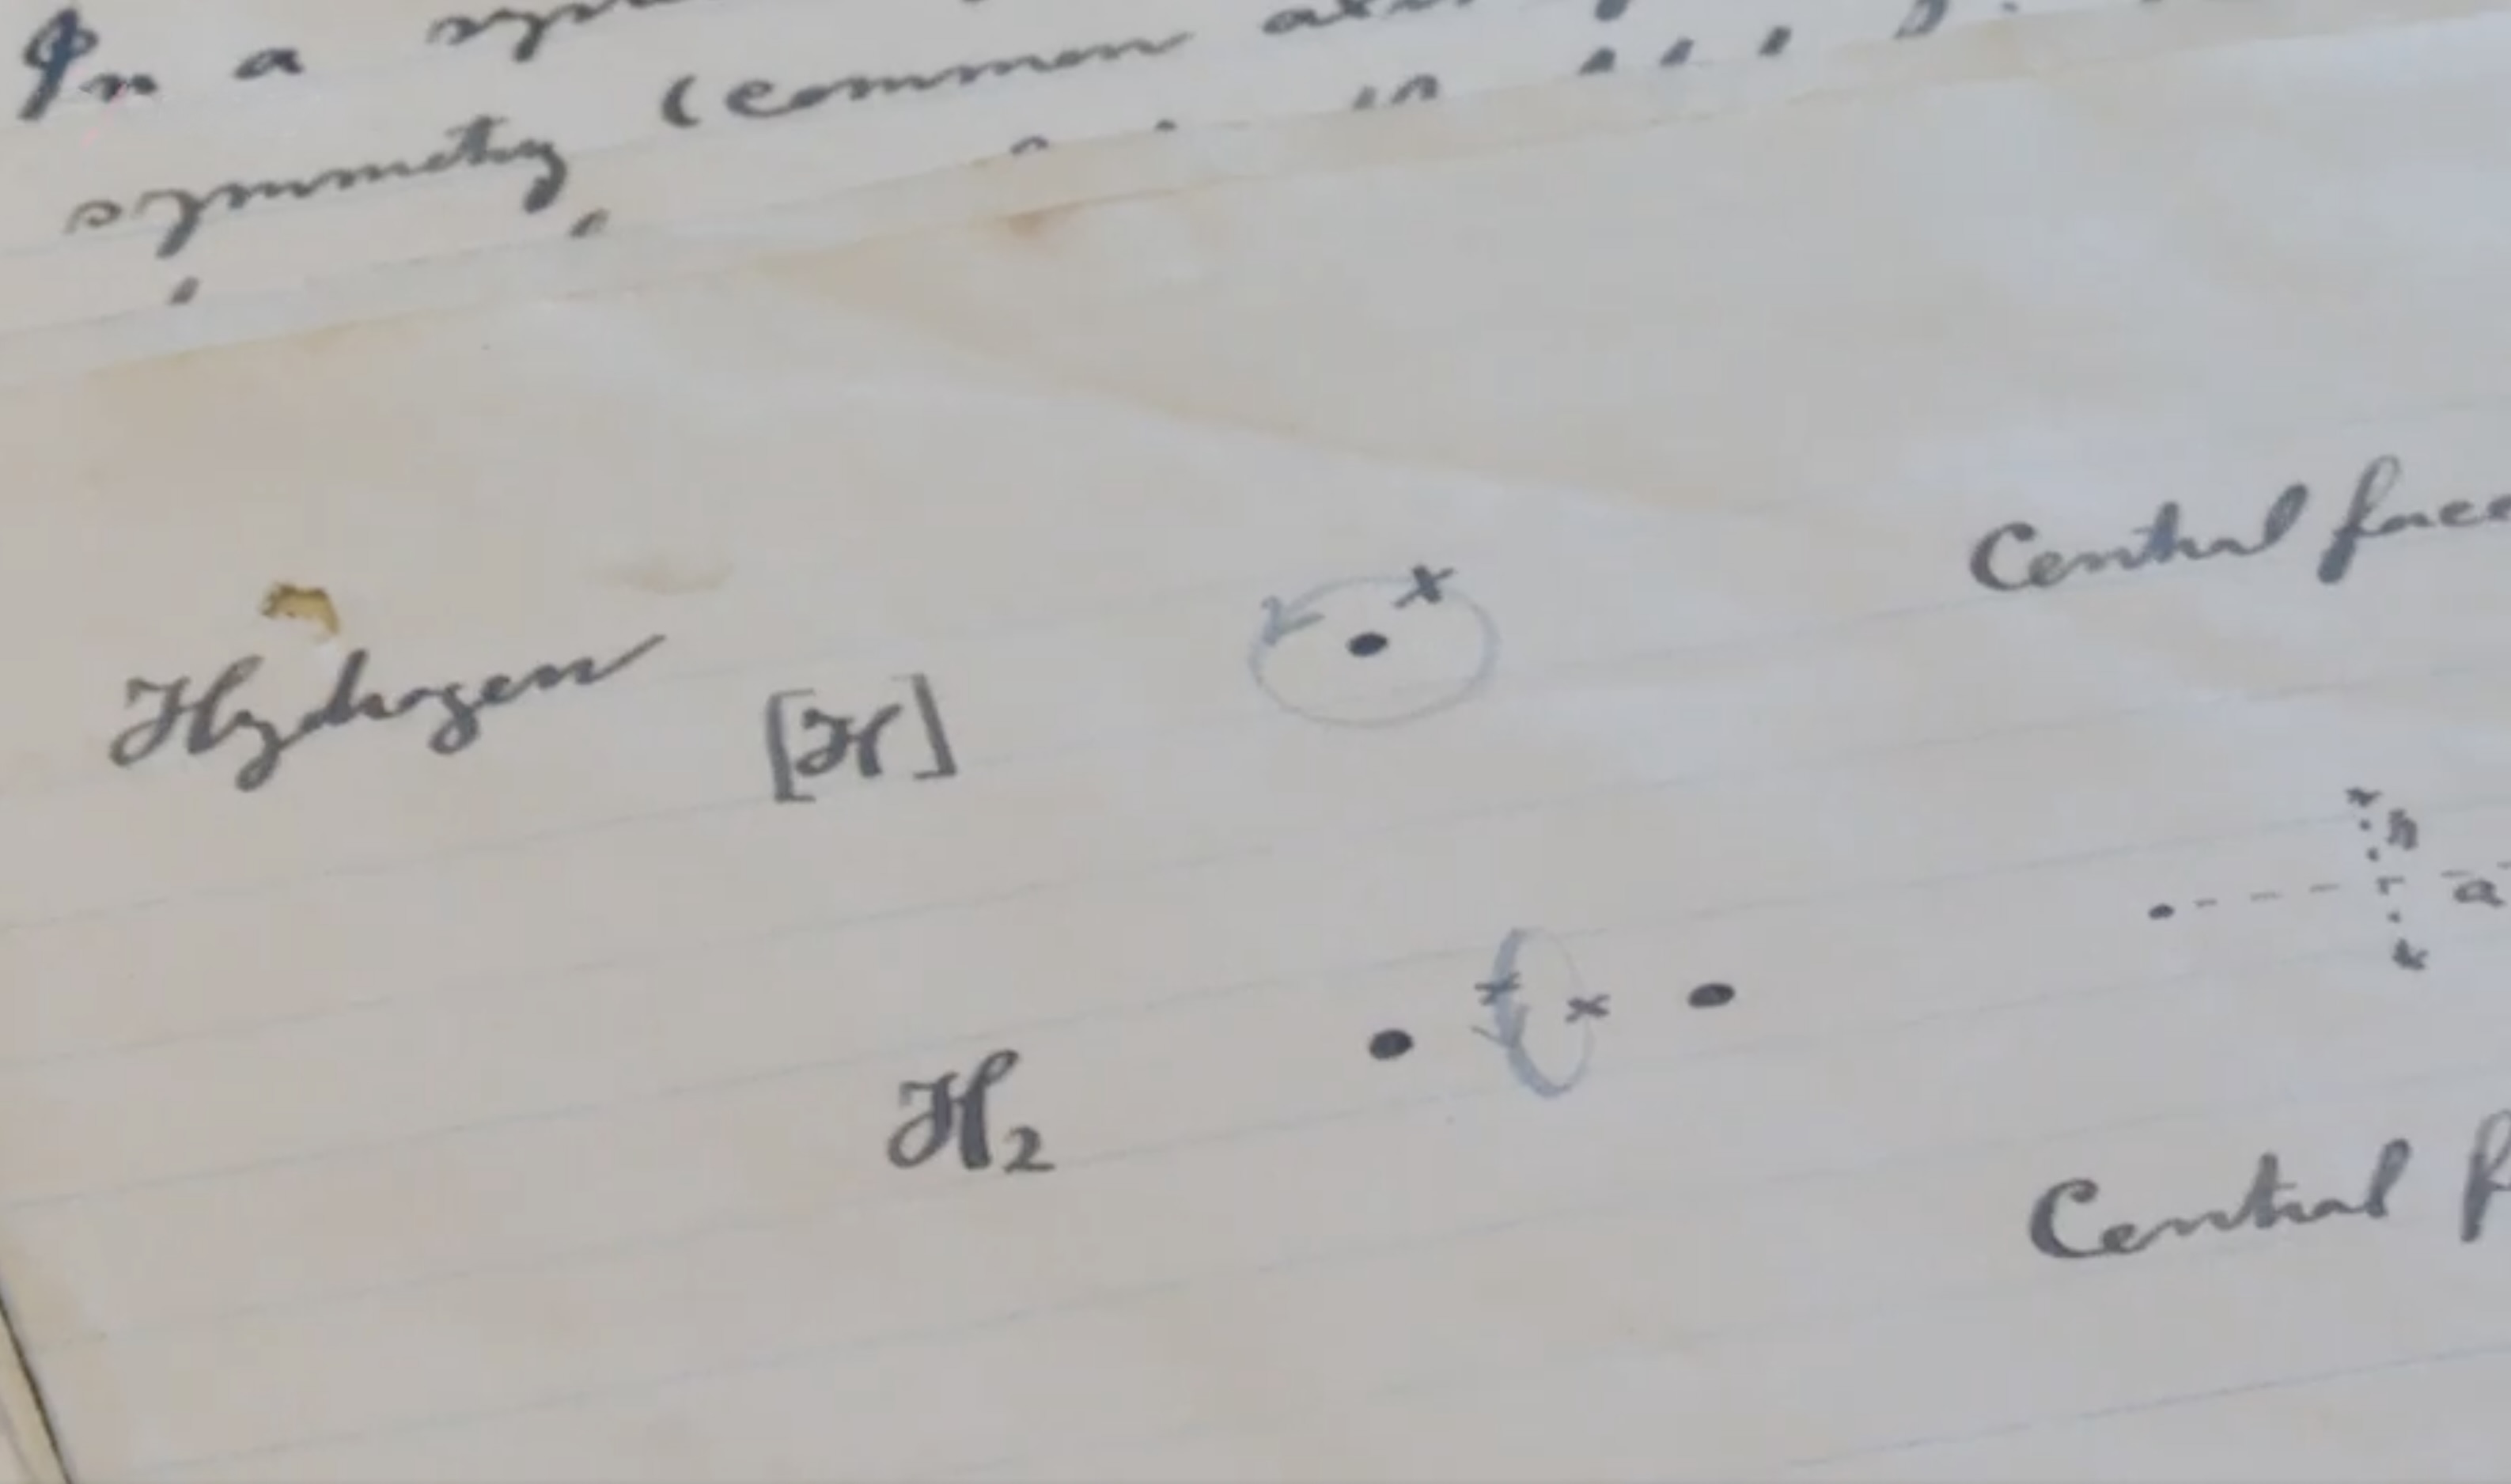 In a
symmetry (common
Hydrogen [H] Central force
h
a
H₂
Central